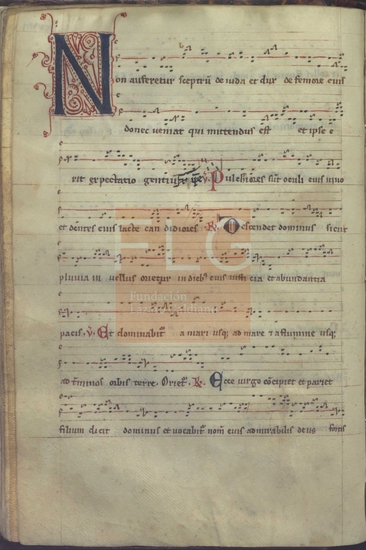 Non auferetur sceptrū de iuda et dux de femore eius
donec ueniat qui mittendus est et ipse e
rit expectatio gentium ỹ. Pulchriores sūt oculi eius uino
et dentes eius lacte candidiores ℟. Descendet dominus sicut
pluuia in uellus orietur in dieb; eius iusticia et abundantia
pacis. ỹ. Et dominabit᷑ a mari usq; ad mare 7 a flumine usq;
ad t̃minos orbis terre. Oriet᷑. ℟. Ecce uirgo cōcipiet et pariet
filium dicit dominus et uocabit᷑ nom̄ eius admirabilis deus fortis
FLG
Fundación